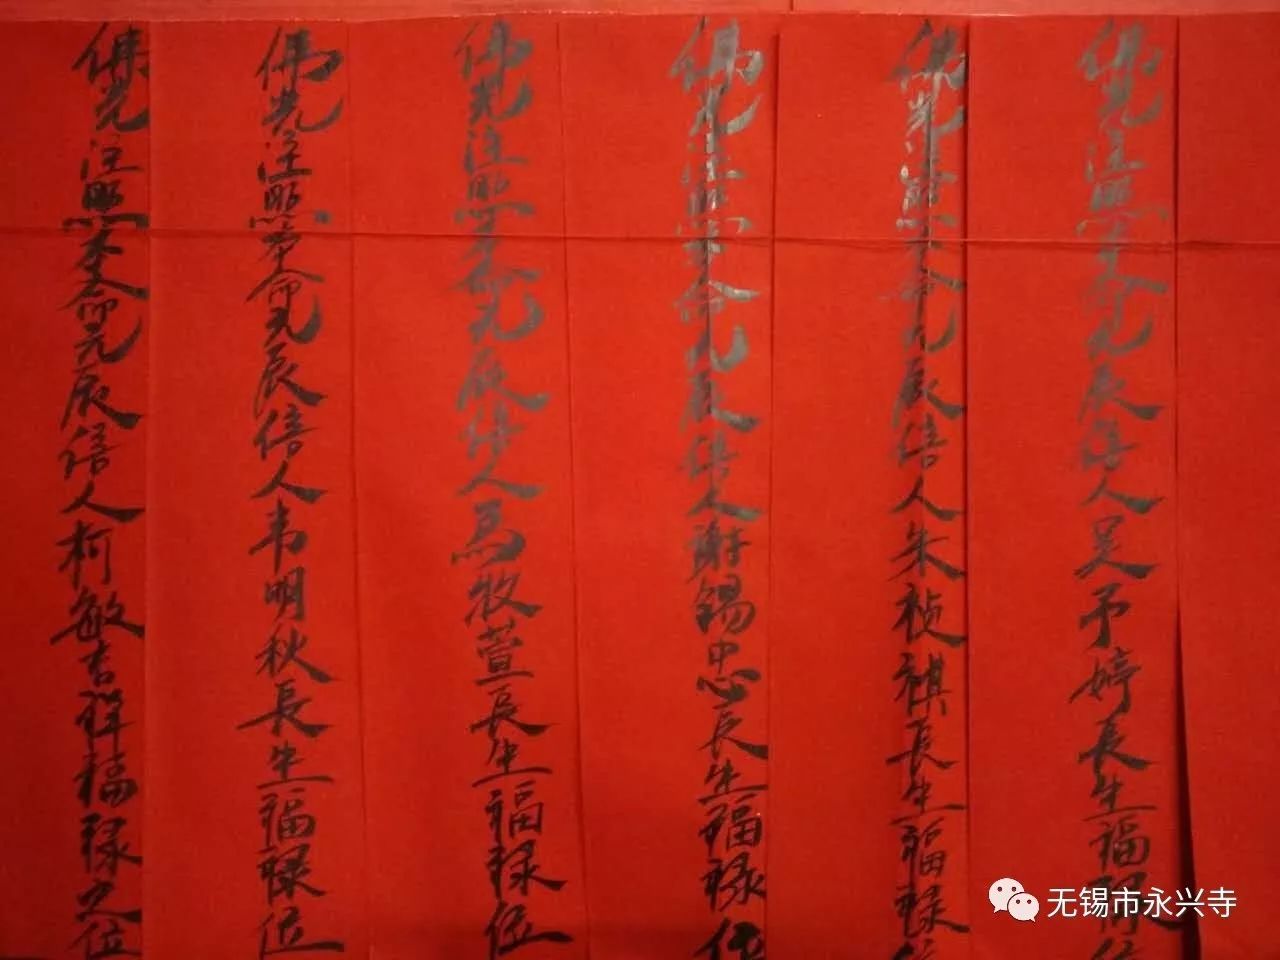 佛光注照本命元辰信人吴予婷長生福禄位
佛光注照本命元辰信人朱祯祺長生福禄位
佛光注照本命元辰信人謝錫忠長生福禄位
佛光注照本命元辰信人马牧萱長生福禄位
佛光注照本命元辰信人韦明秋長生福禄位
佛光注照本命元辰信人柯敏吉祥福禄之位
无锡市永兴寺